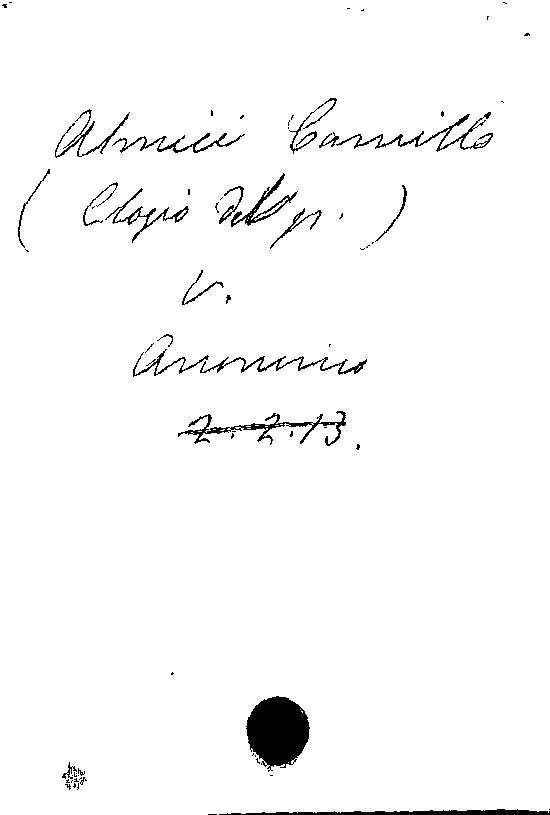 Almici Camillo
( Elogio del p. )
V.
Anonimo
2. 2. 13.